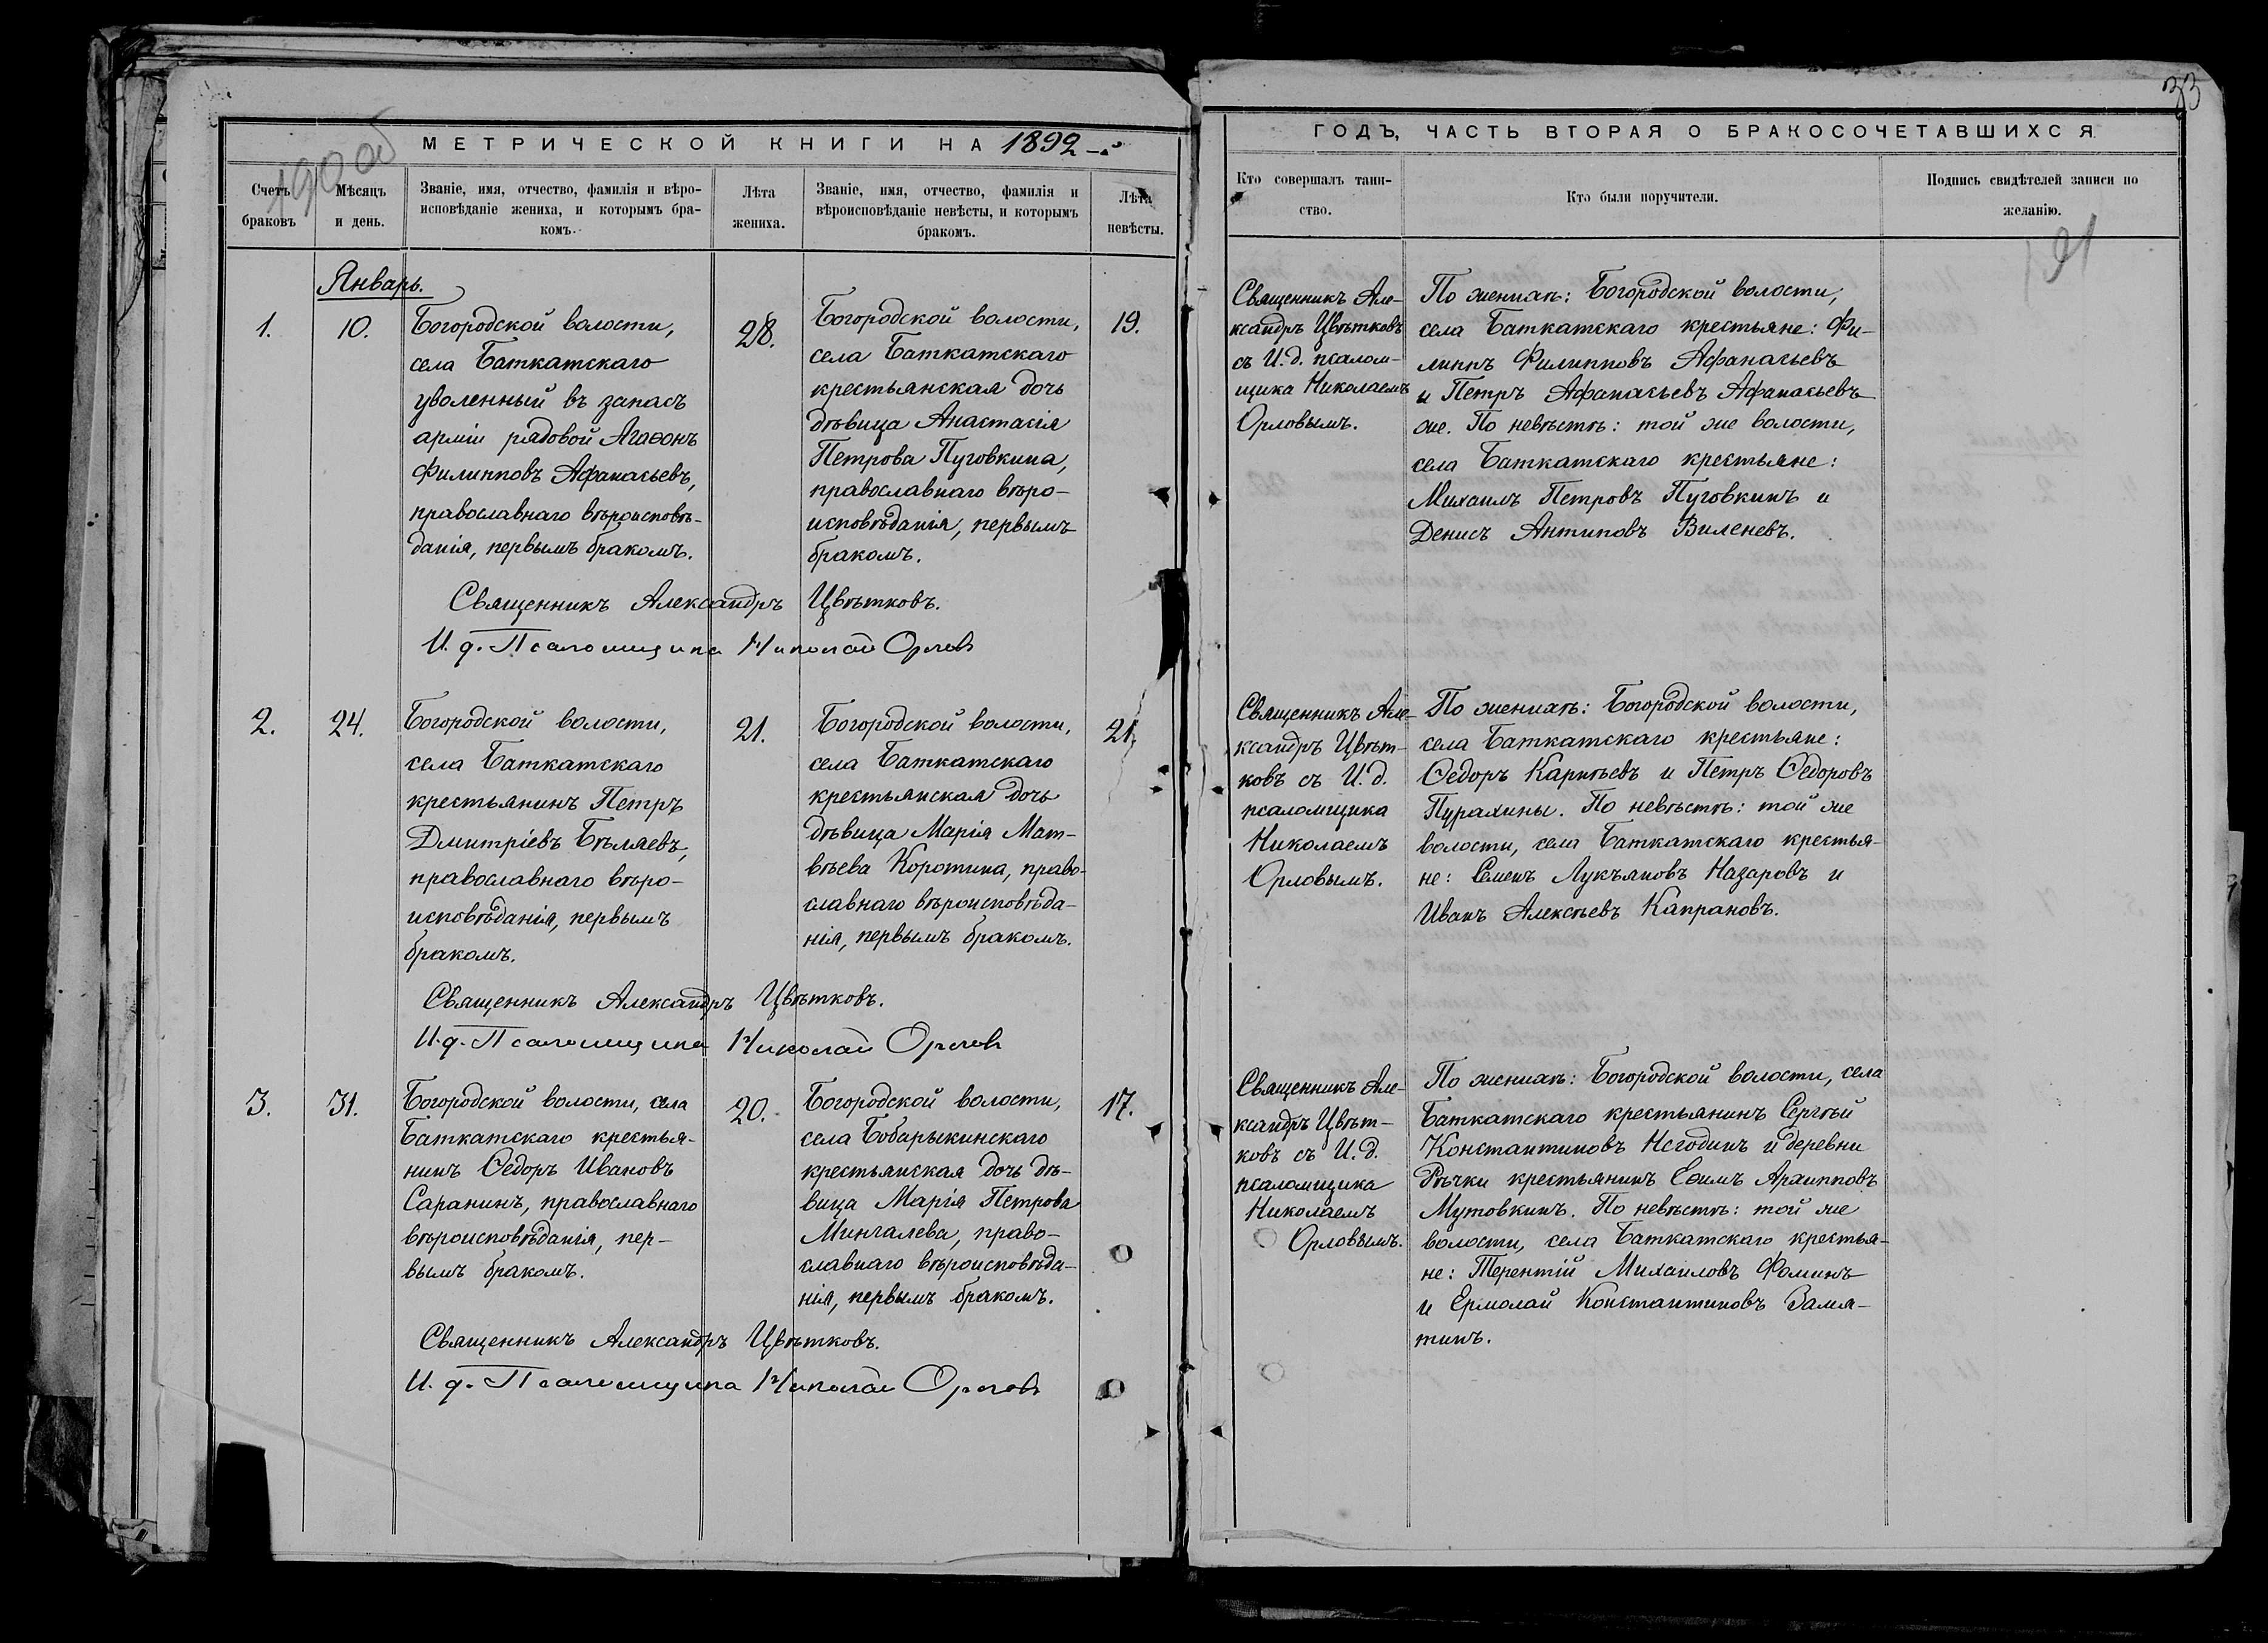 190 об
МЕТРИЧЕСКОЙ КНИГИ НА 1892-й
Счетъ браковъ
Мѣсяцъ и день.
Званіе, имя, отчество, фамилія и вѣро-
исповѣданіе жениха, и которымъ бра-
комъ.
Лѣта жениха.
Званіе, имя, отчество, фамилія и
вѣроисповѣданіе невѣсты, и которымъ
бракомъ.
Лѣта невѣсты.
Январь.
1.
10.
Богородской волости,
села Баткатскаго
уволенный въ запасъ
арміи рядовой Агаѳонъ
Филипповъ Афанасьевъ,
православнаго вѣроисповѣ-
данія, первымъ бракомъ.
28.
Богородской волости,
села Баткатскаго
крестьянская дочь
дѣвица Анастасія
Петрова Пуговкина,
православнаго вѣро-
исповѣданія, первымъ
бракомъ.
19.
Священникъ Александръ Цвѣтковъ.
И. д. Псаломщика Николай Орловъ
2.
24.
Богородской волости,
села Баткатскаго
крестьянинъ Петръ
Дмитріевъ Бѣляевъ,
православнаго вѣро-
исповѣданія, первымъ
бракомъ.
21.
Богородской волости,
села Баткатскаго
крестьянская дочь
дѣвица Марія Мат-
вѣева Коротина, право-
славнаго вѣроисповѣда-
нія, первымъ бракомъ.
21.
Священникъ Александръ Цвѣтковъ.
И. д. Псаломщика Николай Орловъ
3.
31.
Богородской волости, села
Баткатскаго крестья-
нинъ Ѳедоръ Ивановъ
Саранинъ, православнаго
вѣроисповѣданія, пер-
вымъ бракомъ.
20.
Богородской волости,
села Бобарыкинскаго
крестьянская дочь дѣ-
вица Марія Петрова
Мингалева, право-
славнаго вѣроисповѣда-
нія, первымъ бракомъ.
17.
Священникъ Александръ Цвѣтковъ.
И. д. Псаломщика Николай Орловъ
33
ГОДЪ, ЧАСТЬ ВТОРАЯ О БРАКОСОЧЕТАВШИХСЯ
Кто совершалъ таин-
ство.
Кто были поручители.
Подпись свидѣтелей записи по
желанію.
191
Священникъ Але-
ксандръ Цвѣтковъ
съ И. д. псалом-
щика Николаемъ
Орловымъ.
По женихѣ: Богородской волости,
села Баткатскаго крестьяне: Фи-
липпъ Филипповъ Афанасьевъ
и Петръ Афанасьевъ Афанасьевъ
же. По невѣстѣ: той же волости,
села Баткатскаго крестьяне:
Михаилъ Петровъ Пуговкинъ и
Денисъ Антиповъ Виленевъ.
Священникъ Але-
ксандръ Цвѣт-
ковъ съ И. д.
псаломщика
Николаемъ
Орловымъ.
По женихѣ: Богородской волости,
села Баткатскаго крестьяне:
Ѳедоръ Карпѣевъ и Петръ Ѳедоровъ
Пурахины. По невѣстѣ: той же
волости, села Баткатскаго крестья-
не: Семенъ Лукьяновъ Назаровъ и
Иванъ Алексѣевъ Капрановъ.
Священникъ Але-
ксандръ Цвѣт-
ковъ съ И. д.
псаломщика
Николаемъ
Орловымъ.
По женихѣ: Богородской волости, села
Баткатскаго крестьянинъ Сергѣй
Константиновъ Негодинъ и деревни
Рѣчки крестьянинъ Еѳимъ Архипповъ
Мутовкинъ. По невѣстѣ: той же
волости, села Баткатскаго крестья-
не: Терентій Михаиловъ Фоминъ
и Ермолай Константиновъ Замя-
тинъ.